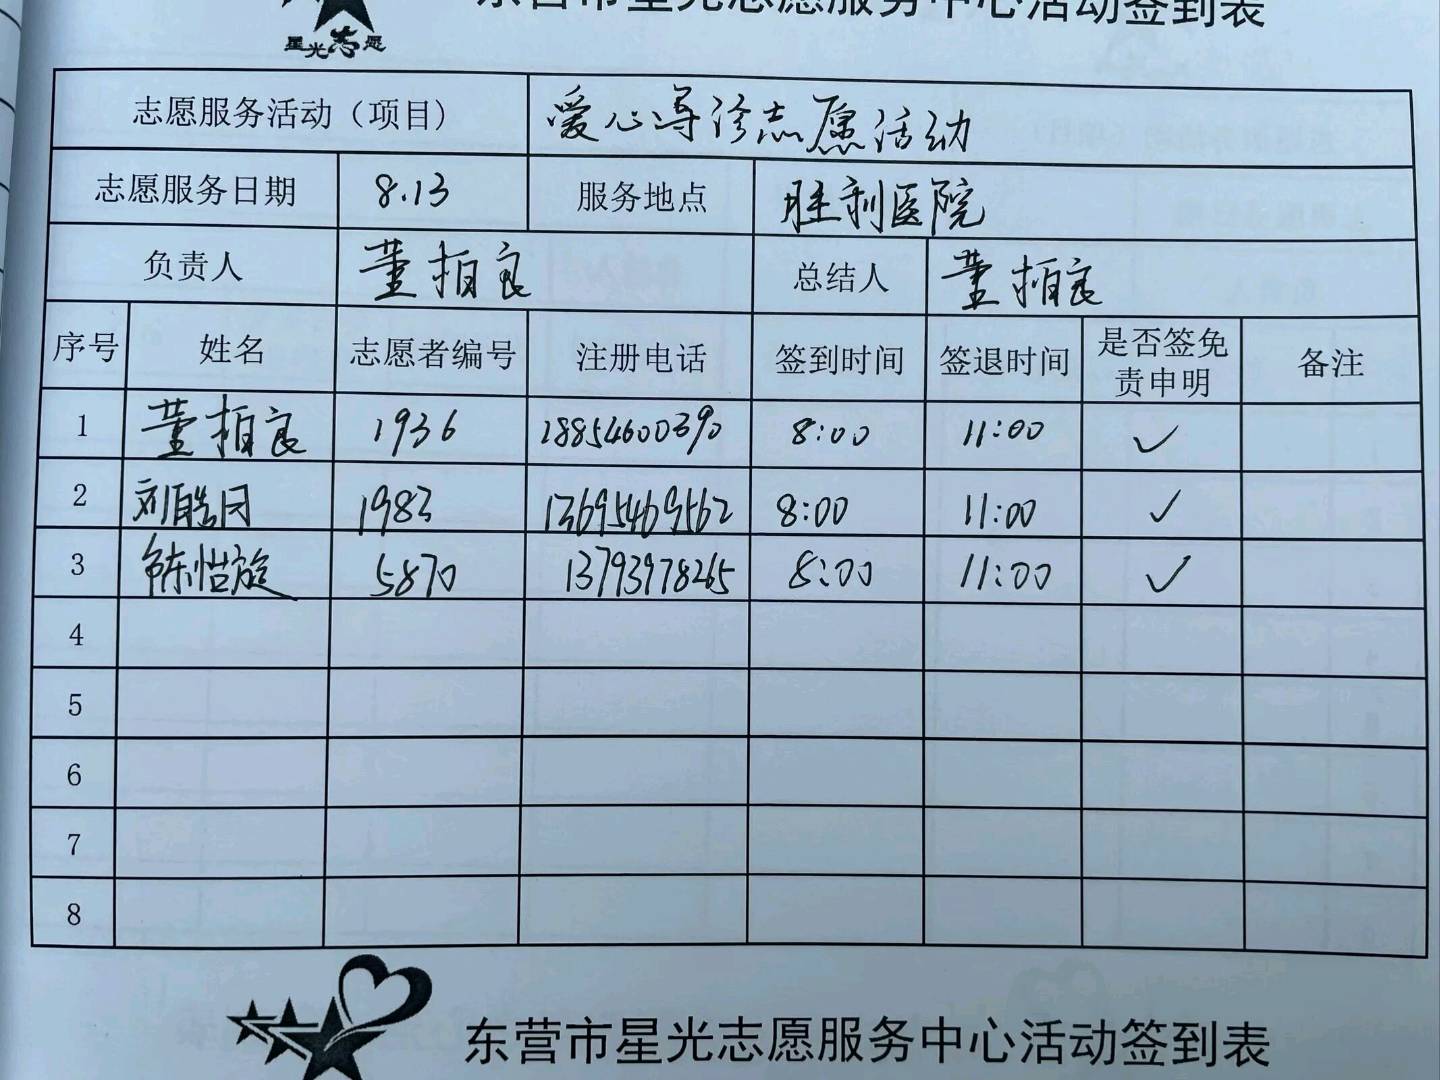 东营市星光志愿服务中心活动签到表
星光志愿
志愿服务活动（项目） 爱心导诊志愿活动
志愿服务日期 8.13 服务地点 胜利医院
负责人 董柏良 总结人 董柏良
序号 姓名 志愿者编号 注册电话 签到时间 签退时间 是否签免责申明 备注
1 董柏良 1936 18854600390 8:00 11:00 ✓
2 1983 13695469562 8:00 11:00 ✓
3 5870 13793978265 8:00 11:00 ✓
4
5
6
7
8
东营市星光志愿服务中心活动签到表